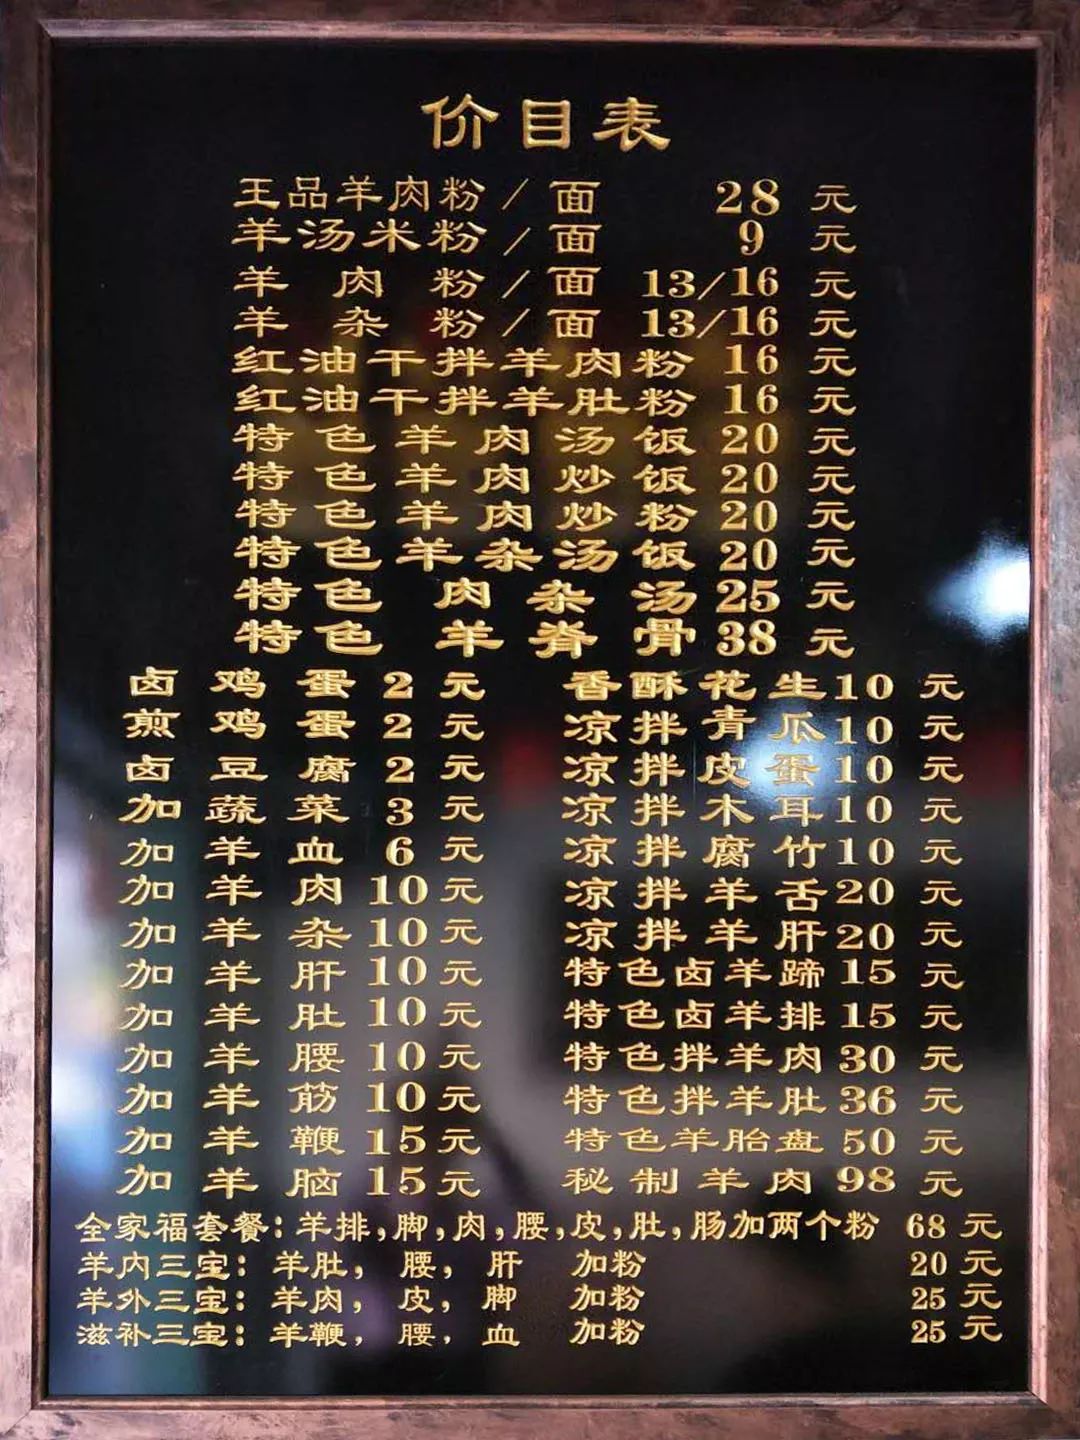 价目表
王品羊肉粉/面 28 元
羊汤米粉/面 9 元
羊肉粉/面 13/16 元
羊杂粉/面 13/16 元
红油干拌羊肉粉 16 元
红油干拌羊肚粉 16 元
特色羊肉汤饭 20 元
特色羊肉炒饭 20 元
特色羊肉炒粉 20 元
特色羊杂汤饭 20 元
特色肉杂汤 25 元
特色羊脊骨 38 元
卤鸡蛋 2 元
煎鸡蛋 2 元
卤豆腐 2 元
加蔬菜 3 元
加羊血 6 元
加羊肉 10 元
加羊杂 10 元
加羊肝 10 元
加羊肚 10 元
加羊腰 10 元
加羊筋 10 元
加羊鞭 15 元
加羊脑 15 元
香酥花生 10 元
凉拌青瓜 10 元
凉拌皮蛋 10 元
凉拌木耳 10 元
凉拌腐竹 10 元
凉拌羊舌 20 元
凉拌羊肝 20 元
特色卤羊蹄 15 元
特色卤羊排 15 元
特色拌羊肉 30 元
特色拌羊肚 36 元
特色羊胎盘 50 元
秘制羊肉 98 元
全家福套餐:羊排,脚,肉,腰,皮,肚,肠加两个粉 68 元
羊内三宝:羊肚,腰,肝 加粉 20 元
羊外三宝:羊肉,皮,脚 加粉 25 元
滋补三宝:羊鞭,腰,血 加粉 25 元